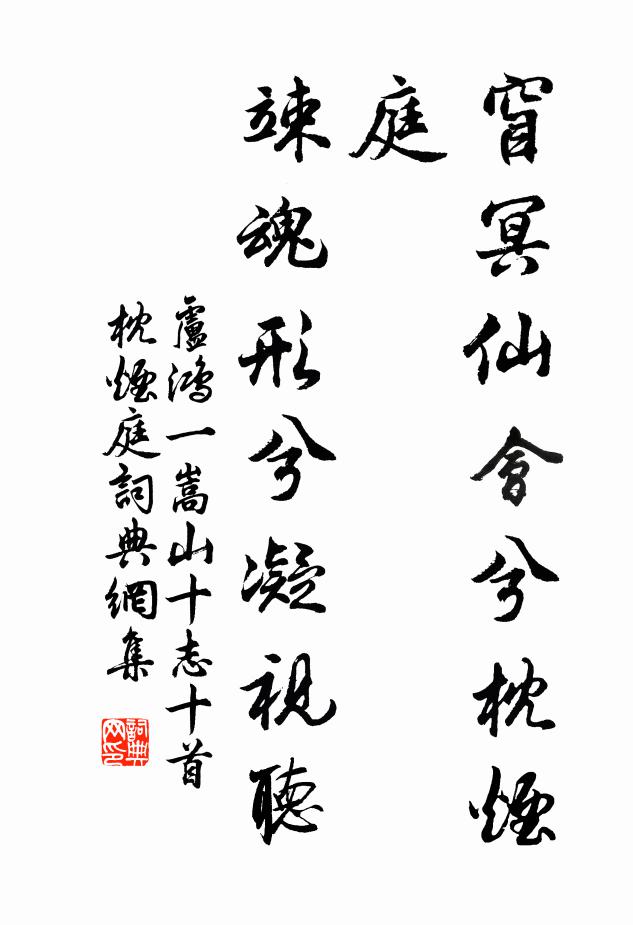 窅冥仙會兮枕煙
庭
竦魂形兮凝視聽
盧鴻一嵩山十志十首
枕煙庭詞典網集
詞典
网印